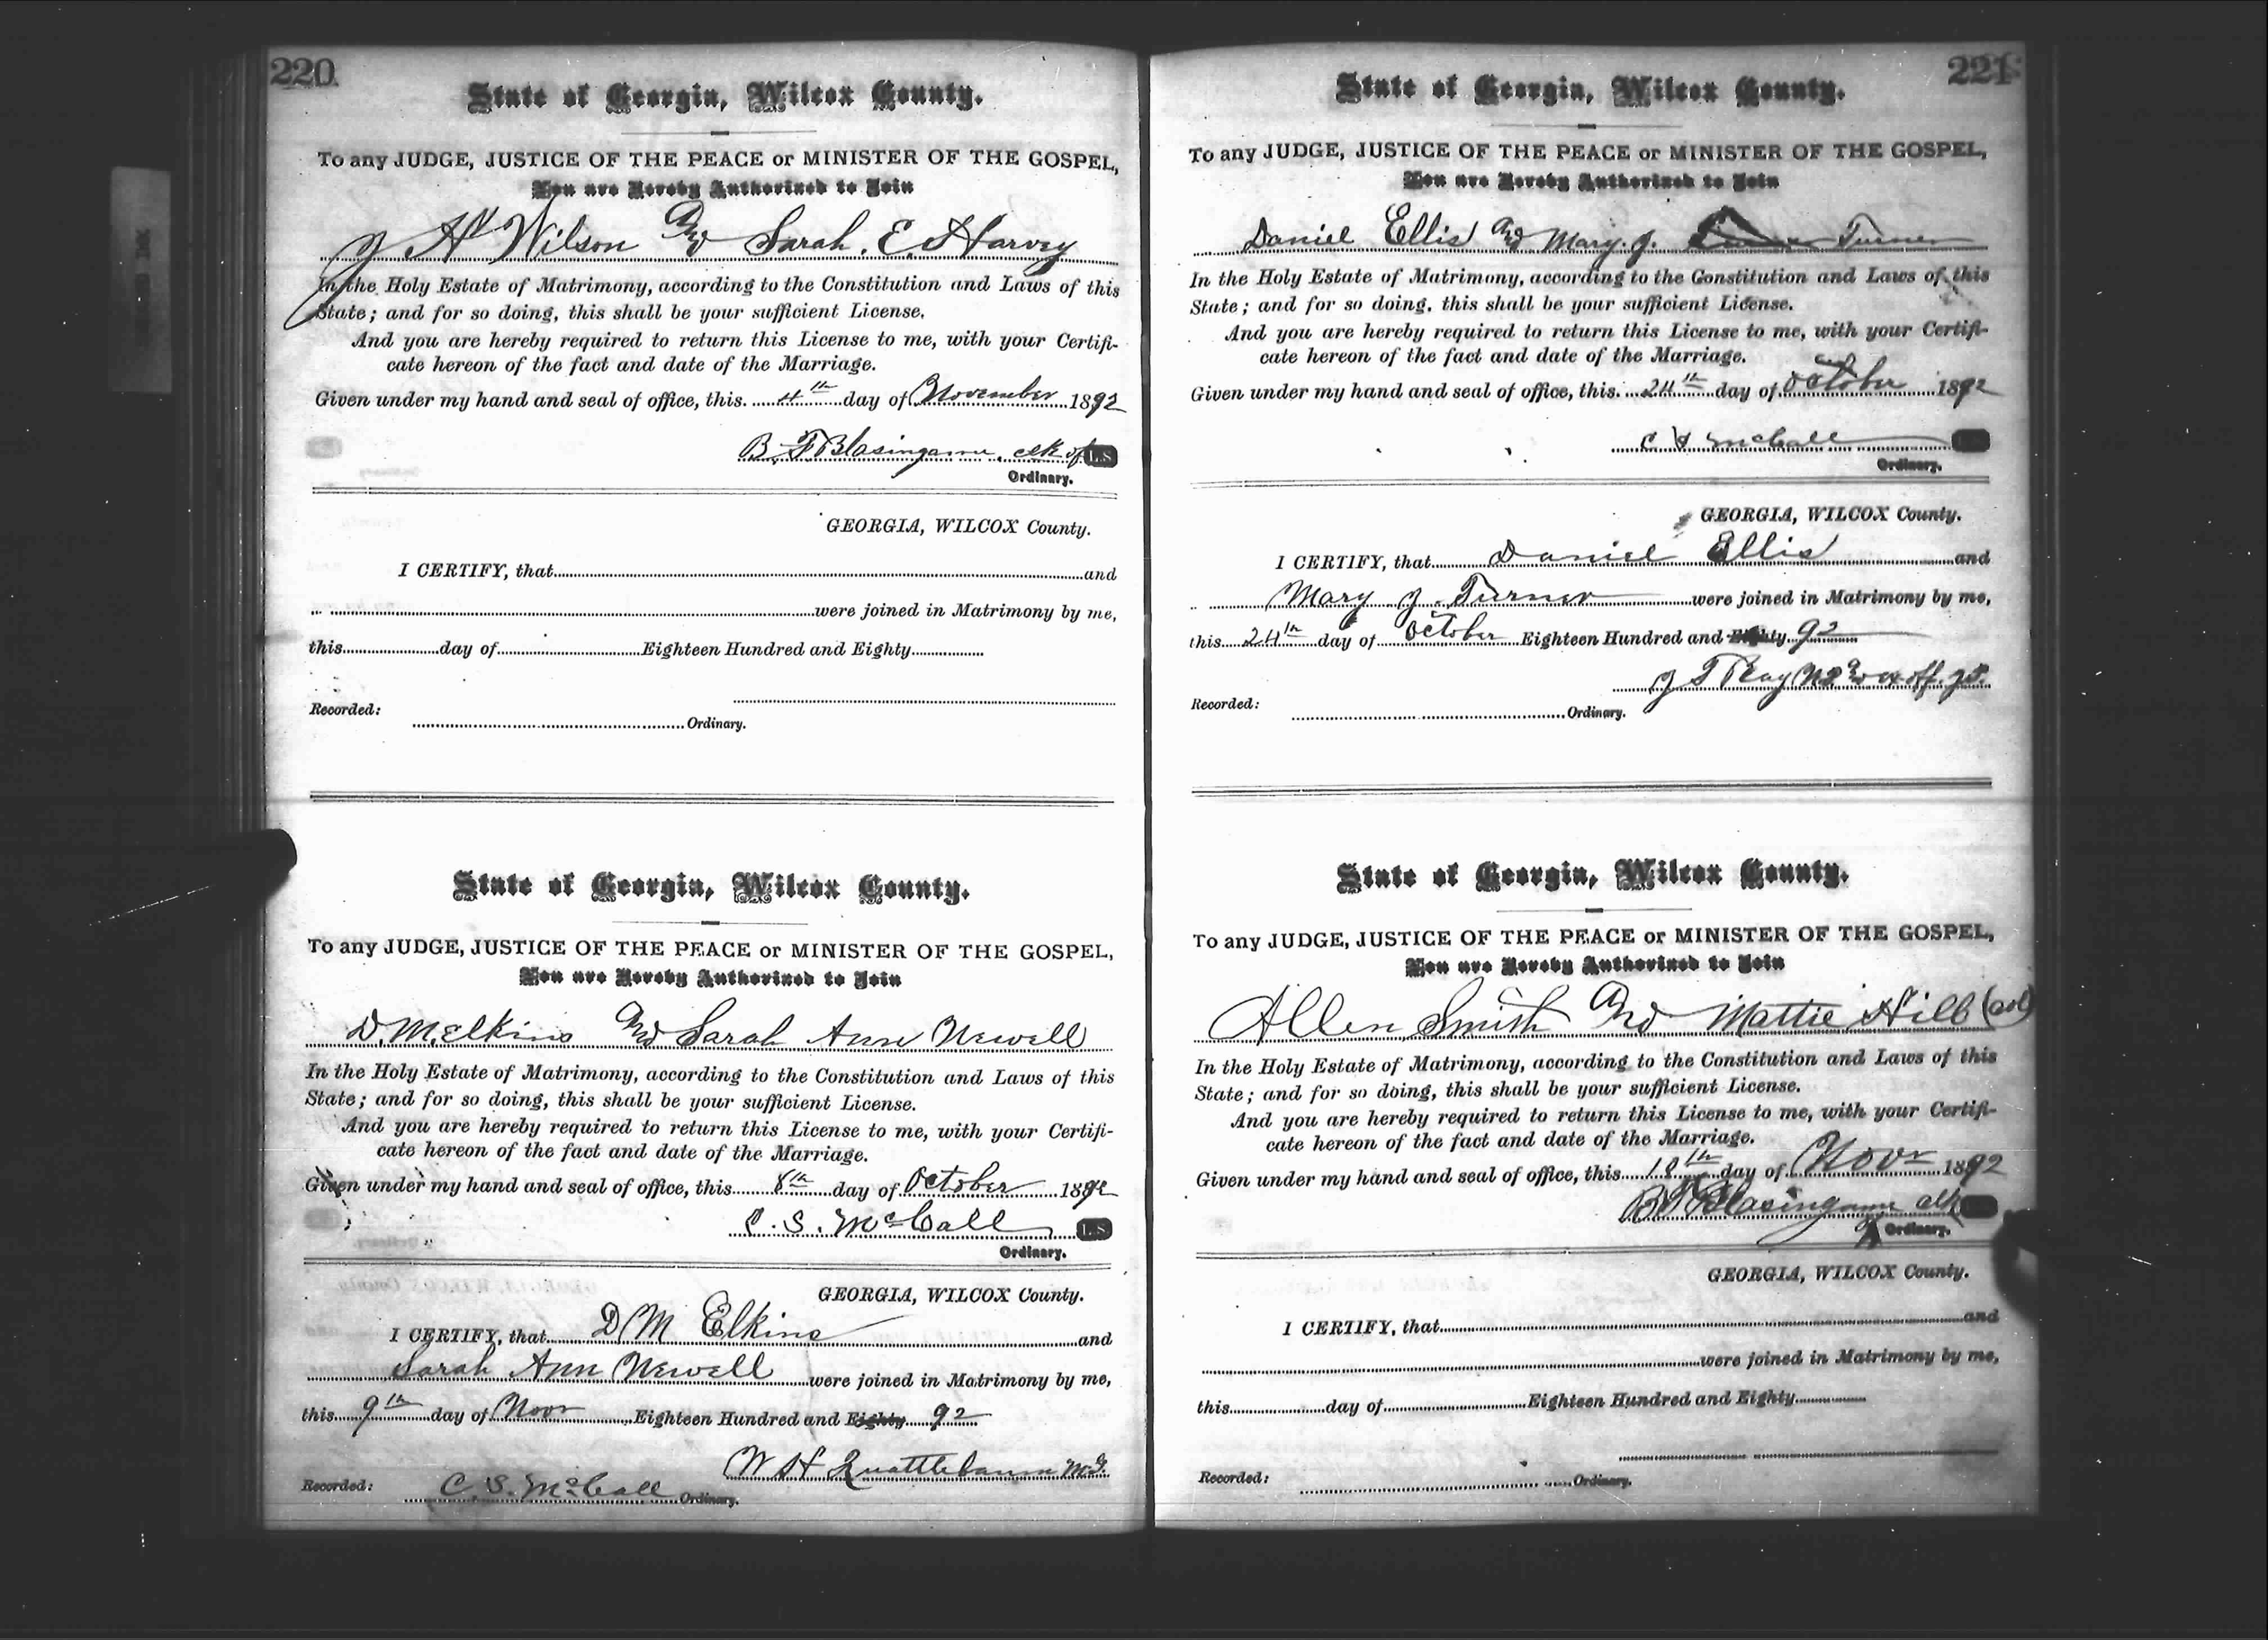 220
State of Georgia, Wilcox County.
To any JUDGE, JUSTICE OF THE PEACE or MINISTER OF THE GOSPEL,
You are Hereby Authorized to Join
J H Wilson and Sarah. E. Harvey
In the Holy Estate of Matrimony, according to the Constitution and Laws of this
State; and for so doing, this shall be your sufficient License.
And you are hereby required to return this License to me, with your Certifi-
cate hereon of the fact and date of the Marriage.
Given under my hand and seal of office, this 4th day of November 1892
B. F Blasingame, clk of L.S
Ordinary.
GEORGIA, WILCOX County.
I CERTIFY, that and
were joined in Matrimony by me,
this day of Eighteen Hundred and Eighty
Recorded:
Ordinary.
State of Georgia, Wilcox County.
To any JUDGE, JUSTICE OF THE PEACE or MINISTER OF THE GOSPEL,
You are Hereby Authorized to Join
D. M. Elkins and Sarah Ann Newell
In the Holy Estate of Matrimony, according to the Constitution and Laws of this
State; and for so doing, this shall be your sufficient License.
And you are hereby required to return this License to me, with your Certifi-
cate hereon of the fact and date of the Marriage.
Given under my hand and seal of office, this 8th day of October 1892
C. S. McCall L.S
Ordinary.
GEORGIA, WILCOX County.
I CERTIFY, that D M Elkins and
Sarah Ann Newell were joined in Matrimony by me,
this 9th day of Novr Eighteen Hundred and Eighty 92
W H Quattlebaum M.G.
Recorded: C. S. McCall Ordinary.
221
State of Georgia, Wilcox County.
To any JUDGE, JUSTICE OF THE PEACE or MINISTER OF THE GOSPEL,
You are Hereby Authorized to Join
Daniel Ellis and Mary. J. Turner
In the Holy Estate of Matrimony, according to the Constitution and Laws of this
State; and for so doing, this shall be your sufficient License.
And you are hereby required to return this License to me, with your Certifi-
cate hereon of the fact and date of the Marriage.
Given under my hand and seal of office, this 24th day of October 1892
C S McCall
Ordinary.
GEORGIA, WILCOX County.
I CERTIFY, that Daniel Ellis and
Mary J. Turner were joined in Matrimony by me,
this 24th day of October Eighteen Hundred and Eighty 92
J T Ray N P and ex off. J P.
Recorded:
Ordinary.
State of Georgia, Wilcox County.
To any JUDGE, JUSTICE OF THE PEACE or MINISTER OF THE GOSPEL,
You are Hereby Authorized to Join
Allen Smith and Mattie Hill (col)
In the Holy Estate of Matrimony, according to the Constitution and Laws of this
State; and for so doing, this shall be your sufficient License.
And you are hereby required to return this License to me, with your Certifi-
cate hereon of the fact and date of the Marriage.
Given under my hand and seal of office, this 18th day of Novr 1892
B F Blasingame clk
Ordinary.
GEORGIA, WILCOX County.
I CERTIFY, that and
were joined in Matrimony by me,
this day of Eighteen Hundred and Eighty
Recorded:
Ordinary.